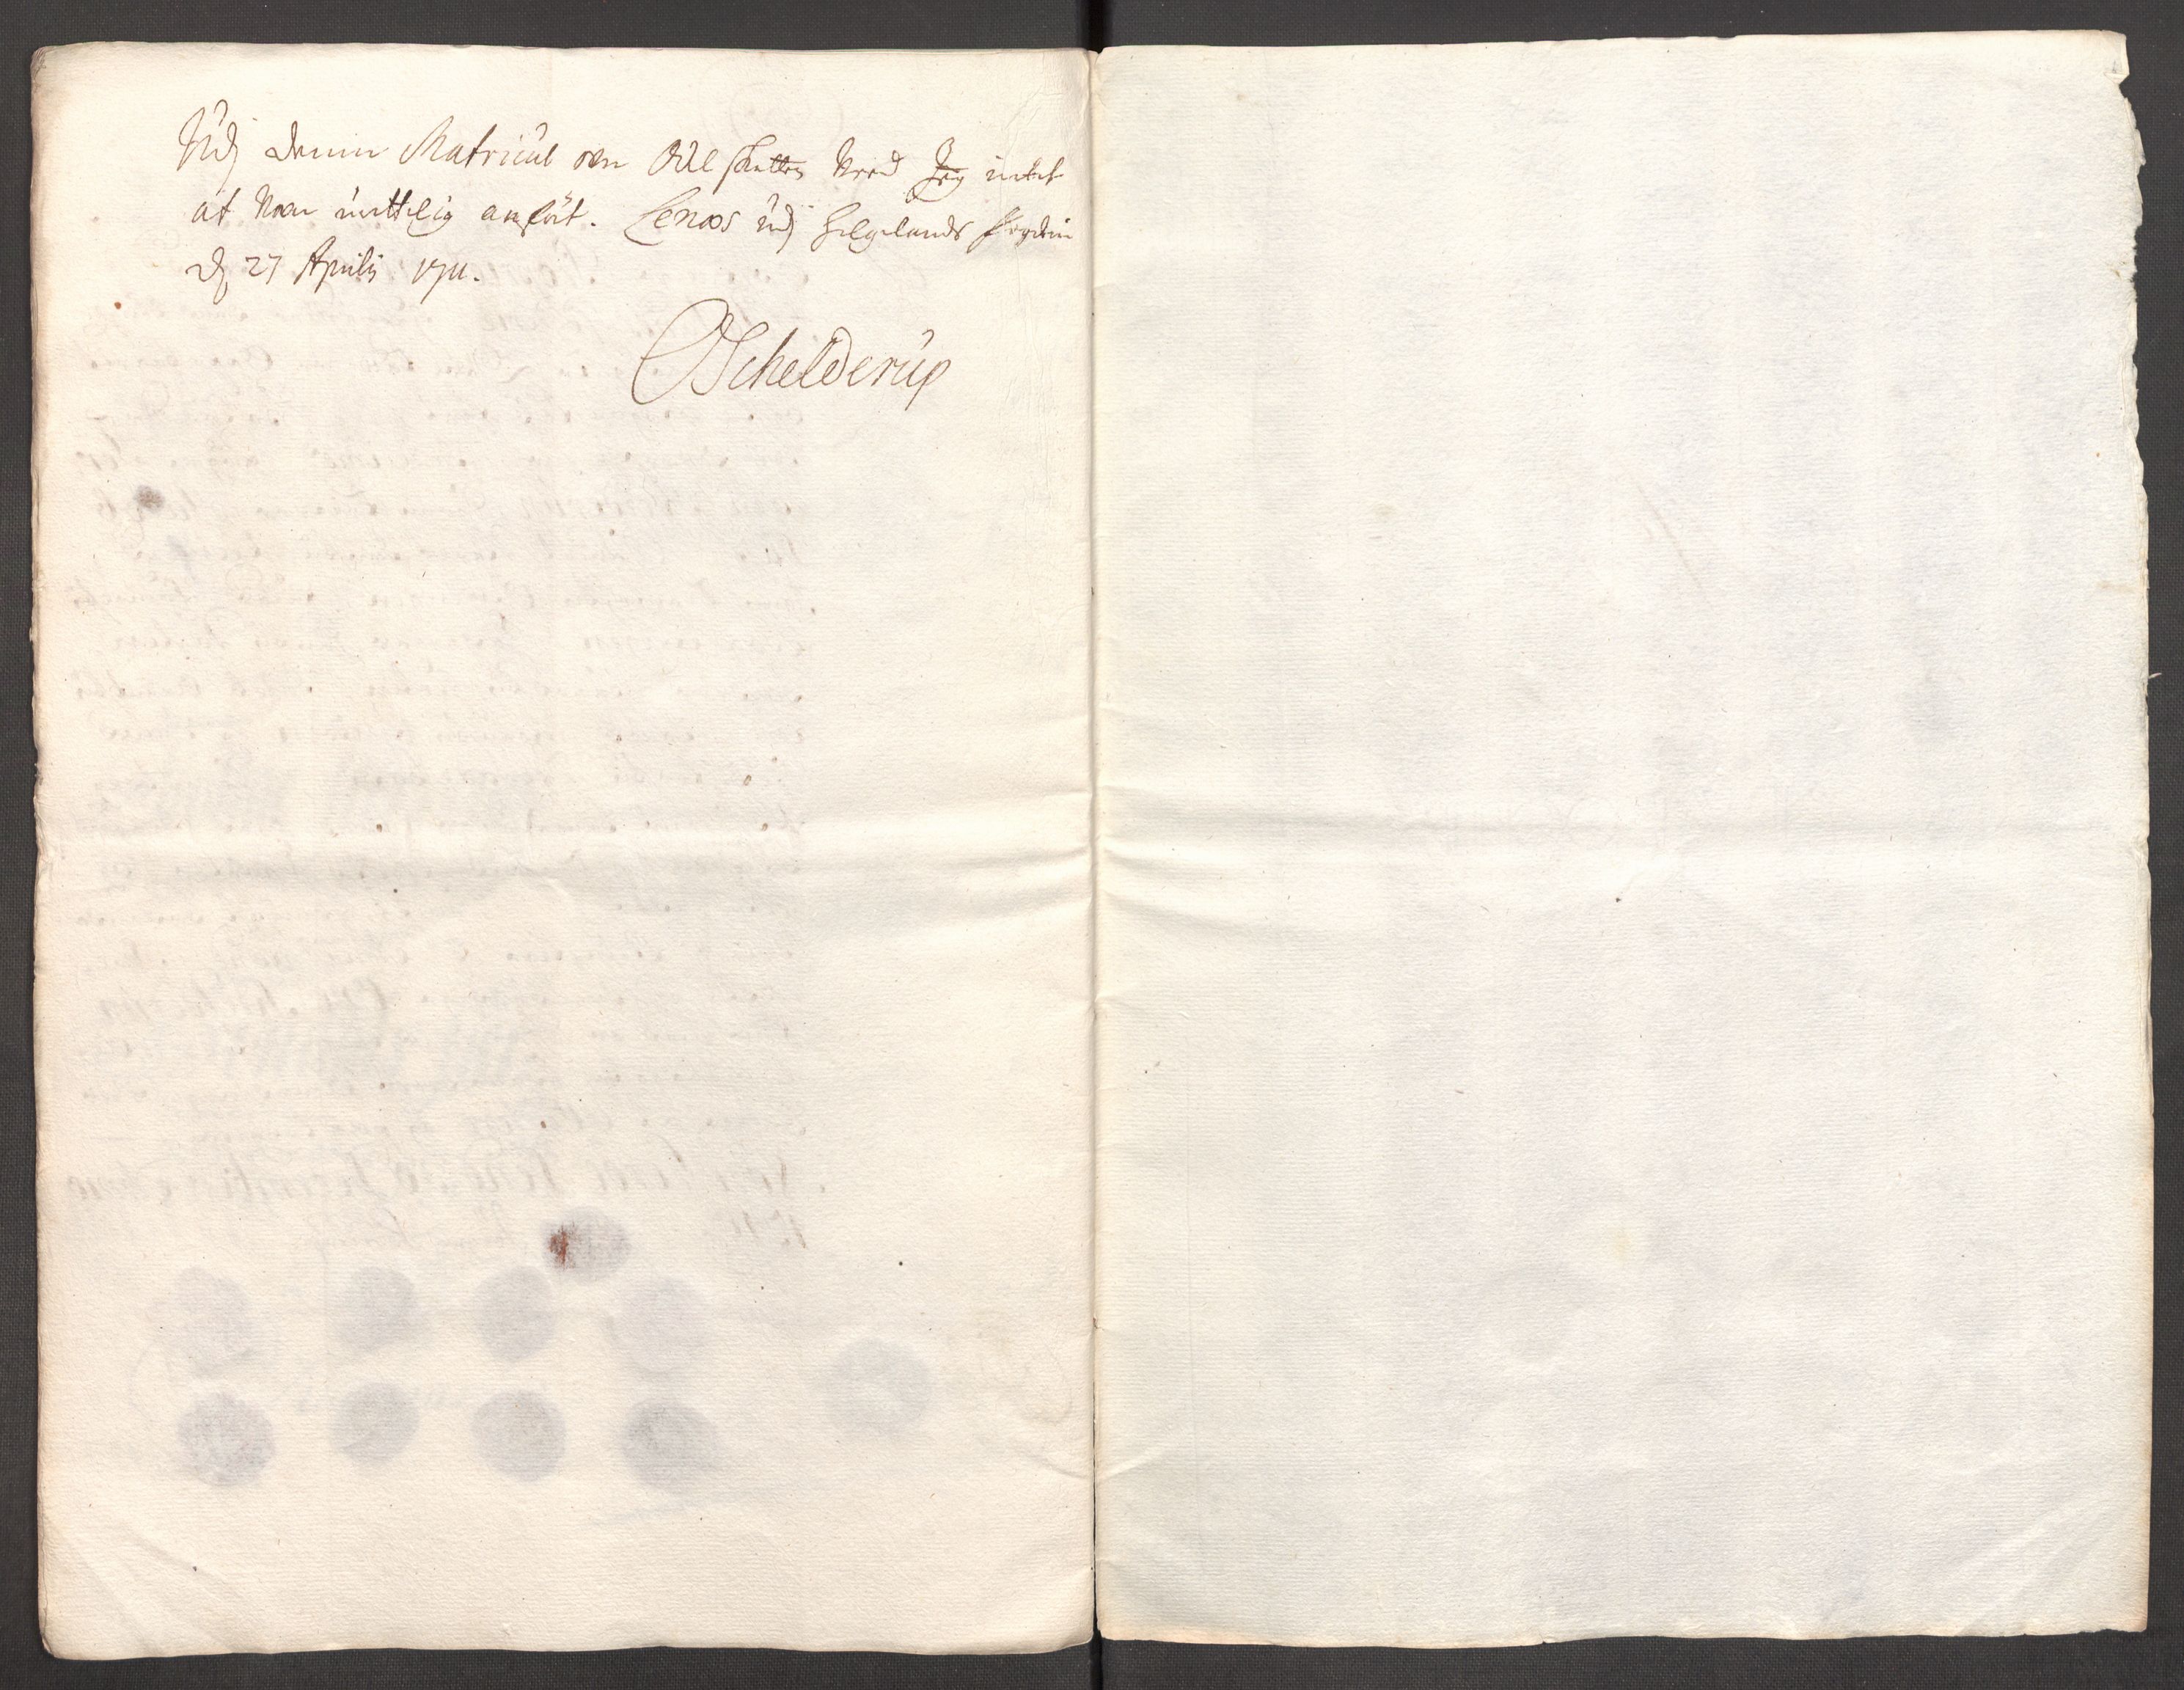 Udj denne Matricul over Odel skatten veed Jeg intet
at være urettelig anført. Lenoos udj Helgelands fogderie
d 27 Aprilis 1711.
Schelderup